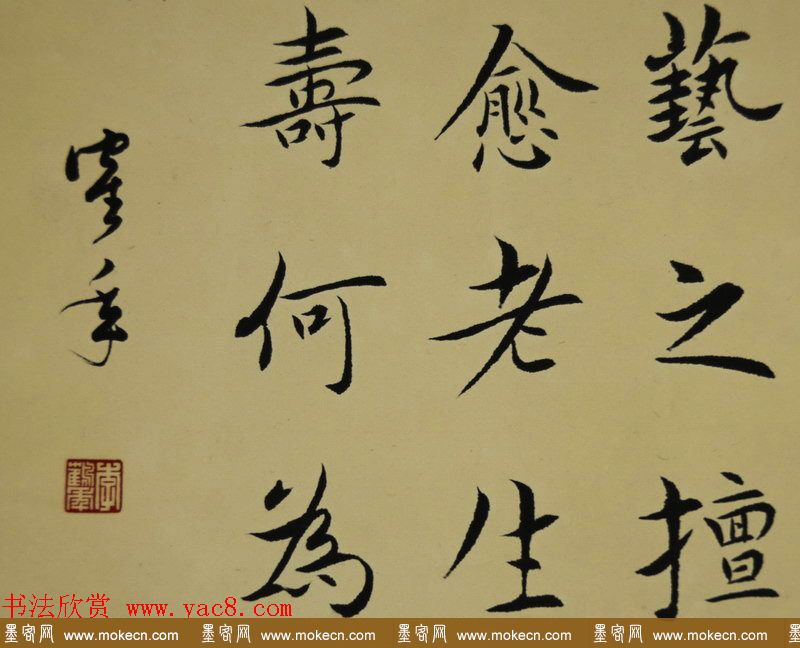 藝之擅
愈老生
壽何為
鶴年
李鶴年
书法欣赏 www.yac8.com
墨客网 www.mokecn.com 墨客网 www.mokecn.com 墨客网 www.mokecn.com 墨客网 www.mokecn.com